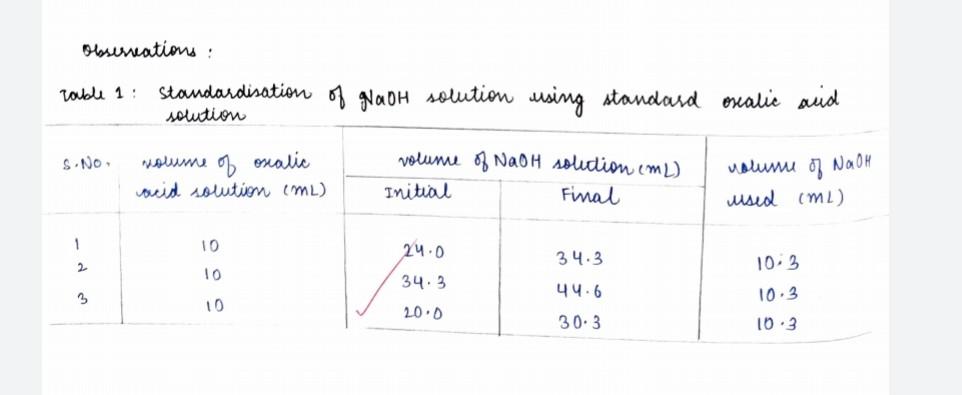 Observations :
Table 1 : Standardisation of NaOH solution using standard oxalic acid
solution
S.No. volume of oxalic acid solution (mL) volume of NaOH solution (mL) Initial Final volume of NaOH used (mL)
1 10 24.0 34.3 10.3
2 10 34.3 44.6 10.3
3 10 20.0 30.3 10.3